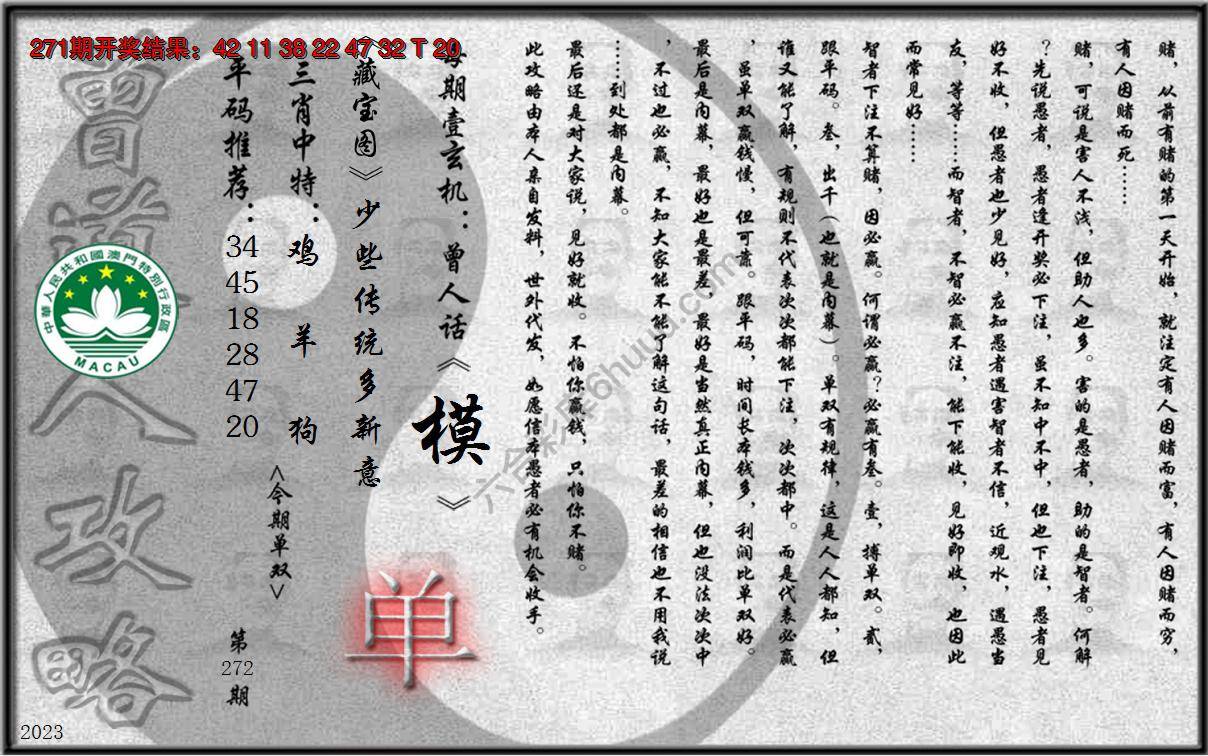 271期开奖结果：42 11 38 22 47 32 T 20
赌，从前有赌的第一天开始，就注定有人因赌而富，有人因赌而穷，
有人因赌而死……
赌，可说是害人不浅，但助人也多。害的是愚者，助的是智者。何解
？先说愚者，愚者逢开奖必下注，虽不知中不中，但也下注，愚者见
好不收，但愚者也少见好，应知愚者遇害智者不信，近观水，遇愚当
友，等等……而智者，不智必赢不注，能下能收，见好即收，也因此
而常见好……
智者下注不算赌，因必赢。何谓必赢？必赢有叁。壹，搏单双。贰，
跟平码。叁，出千（也就是内幕）。单双有规律，这是人人都知，但
谁又能了解，有规则不代表次次都能下注，次次都中。而是代表必赢
，虽单双赢钱慢，但可靠。跟平码，时间长本钱多，利润比单双好。
最后是内幕，最好也是最差，最好是当然真正内幕，但也没法次次中
，不过也必赢，不知大家能不能了解这句话，最差的相信也不用我说
……到处都是内幕。
最后还是对大家说，见好就收。不怕你赢钱，只怕你不赌。
此攻略由本人亲自发料，世外代发，如愿信本愚者必有机会收手。
每期壹玄机：曾人话《模》
《藏宝图》少些传统多新意
三肖中特：鸡 羊 狗
平码推荐：34 45 18 28 47 20
<今期单双>
单
第272期
曾道人攻略
中華人民共和國澳門特別行政區
MACAU
六合彩库6huuu.com
2023